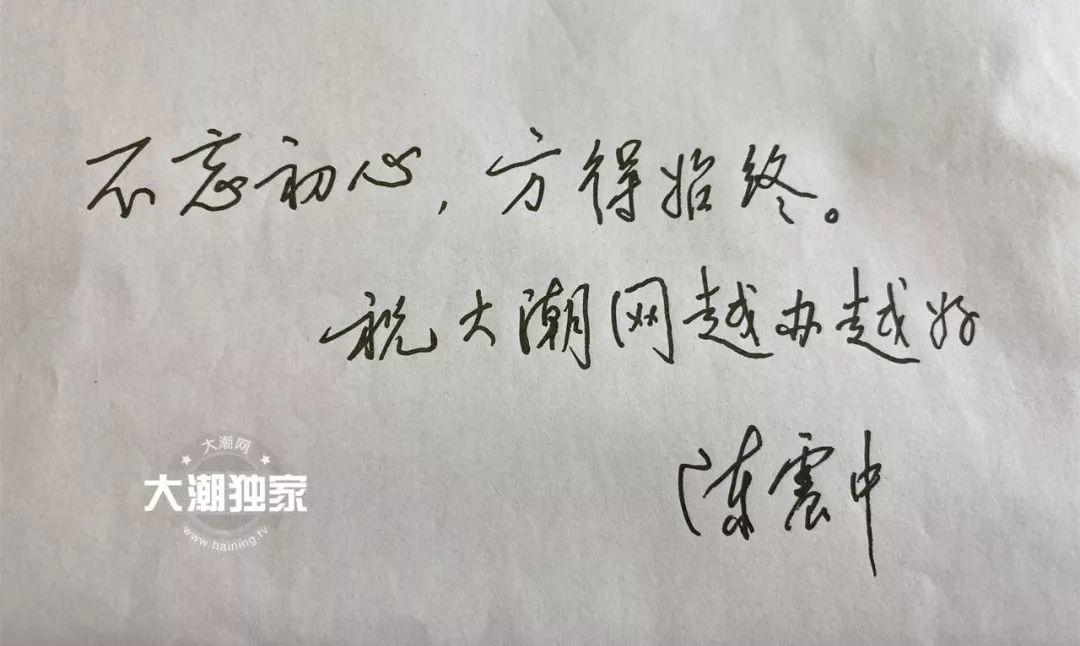 不忘初心，方得始终。
祝大潮网越办越好
陈震中
大潮网
大潮独家
www.haining.tv